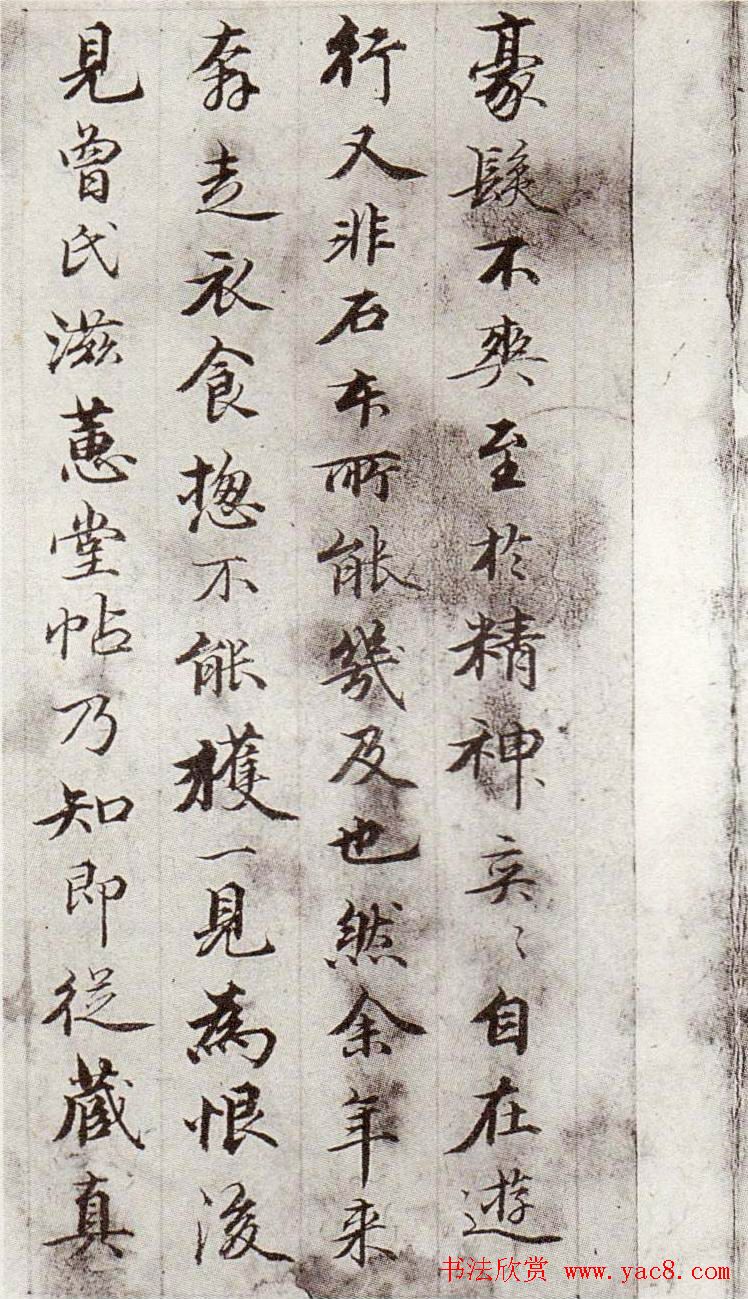 豪髮不爽至於精神奕〻自在遊
行又非石本所能幾及也然余年来
奔走衣食揔不能獲一見為恨後
見曾氏滋蕙堂帖乃知即從蔵真
书法欣赏 www.yac8.com